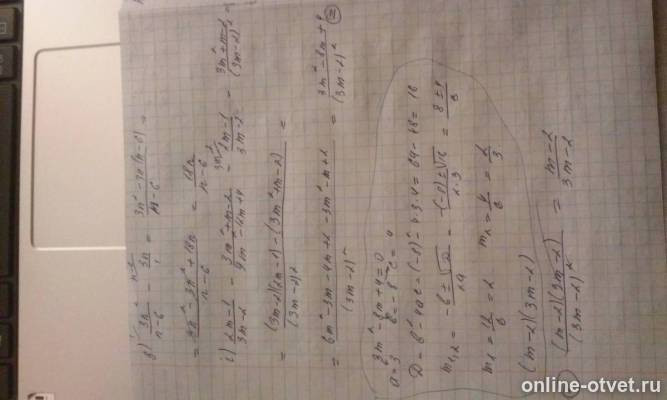 3n²/(n-6) - 3n/1 = (3n² - 3n(n-6))/(n-6) =
= (3n² - 3n² + 18n)/(n-6) = 18n/(n-6)
(2m-1)/(3m-2) - (3m²+m-2)/(9m²-12m+4) = (2m-1)/(3m-2) - (3m²+m-2)/(3m-2)² =
= ((3m-2)(2m-1) - (3m²+m-2))/(3m-2)² =
= (6m²-3m-4m+2-3m²-m+2)/(3m-2)² = (3m²-8m+4)/(3m-2)² =
3m²-8m+4=0
a=3 b=-8 c=4
D=b²-4ac=(-8)²-4·3·4=64-48=16
m1,2 = (-b±√D)/2a = (-(-8)±√16)/(2·3) = (8±4)/6
m1 = 12/6 = 2 m2 = 4/6 = 2/3
(m-2)(3m-2)
= ((m-2)(3m-2))/(3m-2)² = (m-2)/(3m-2)
online-otvet.ru